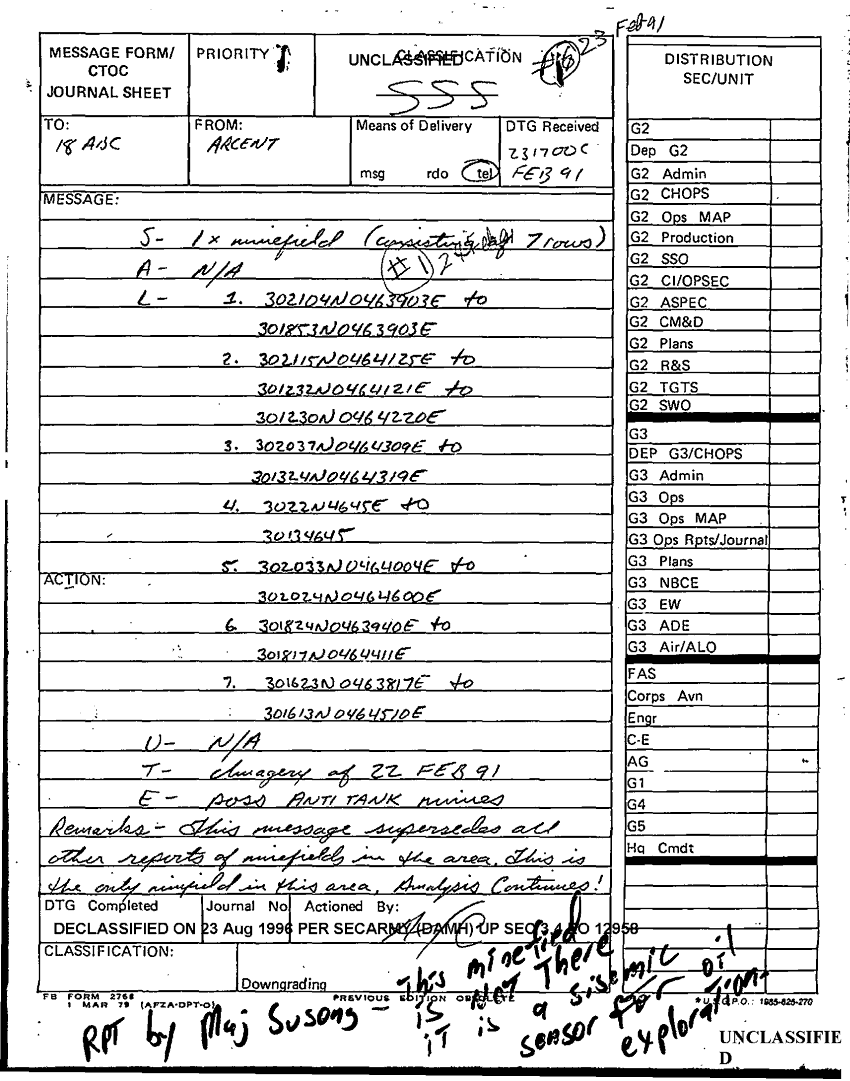 23 Feb 91
MESSAGE FORM/
CTOC
JOURNAL SHEET
PRIORITY 1
CLASSIFICATION
UNCLASSIFIED
SSS
TO:
18 ABC
FROM:
ARCENT
Means of Delivery
msg rdo tel
DTG Received
231700C
FEB 91
MESSAGE:
S- 1x minefield (consisting of 7 rows)
#1
A- N/A
L- 1. 302104N0463903E to
301853N0463903E
2. 302115N0464125E to
301232N0464121E to
301230N0464220E
3. 302037N0464309E to
301324N0464319E
4. 3022N4645E to
30134645
5. 302033N0464004E to
ACTION:
302024N0464600E
6. 301824N0463940E to
301817N0464411E
7. 301623N0463817E to
301613N0464510E
U- N/A
T- Imagery of 22 FEB 91
E- poss ANTI TANK mines
Remarks- This message supersedes all
other reports of minefields in the area. This is
the only minfield in this area. Analysis Continues!
DTG Completed
Journal No
Actioned By:
DECLASSIFIED ON 23 Aug 1996 PER SECARMY (DAMH) UP SEC 3.4 EO 12958
CLASSIFICATION:
Downgrading
FB FORM 2768
1 MAR 79 (AFZA-DPT-O)
PREVIOUS EDITION OBSOLETE
*U.S.G.P.O.: 1985-625-270
RPT by Maj Susong - This minefied
is NOT There
iT is a sisemic
sensor for oil
exploration.
DISTRIBUTION
SEC/UNIT
G2
Dep G2
G2 Admin
G2 CHOPS
G2 Ops MAP
G2 Production
G2 SSO
G2 CI/OPSEC
G2 ASPEC
G2 CM&D
G2 Plans
G2 R&S
G2 TGTS
G2 SWO
G3
DEP G3/CHOPS
G3 Admin
G3 Ops
G3 Ops MAP
G3 Ops Rpts/Journal
G3 Plans
G3 NBCE
G3 EW
G3 ADE
G3 Air/ALO
FAS
Corps Avn
Engr
C-E
AG
G1
G4
G5
Hq Cmdt
UNCLASSIFIE
D